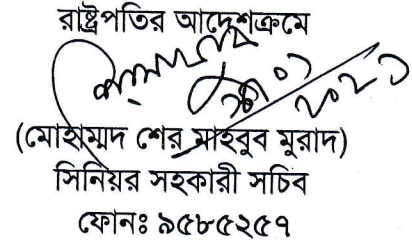 রাষ্ট্রপতির আদেশক্রমে
(মোহাম্মদ শের মাহবুব মুরাদ)
সিনিয়র সহকারী সচিব
ফোনঃ ৯৫৮৫২৫৭